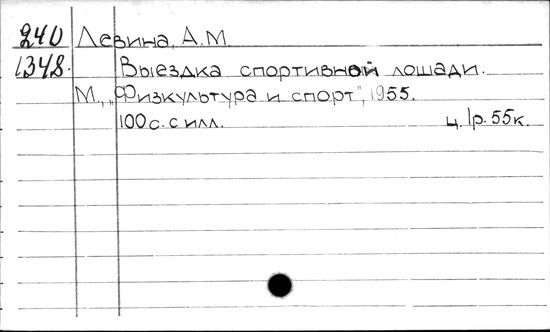 240 Левина, А.М.
1348. Выездка спортивной лошади.
М., „Физкультура и спорт", 1955.
100 с. с илл. ц. 1р. 55к.